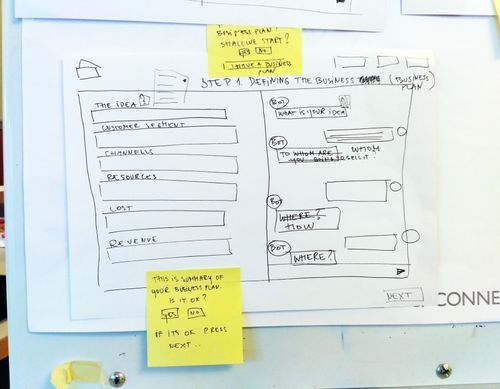 BUSINESS PLAN.
SHALL WE START?
YES NO
I HAVE A BUSINESS
PLAN
STEP 1. DEFINING THE BUSINESS (BUSINESS
PLAN)
THE IDEA
CUSTOMER SEGMENT
CHANNELLS
RESOURCES
COST
REVENUE
BOT
WHAT IS YOUR IDEA
BOT
TO WHOM ARE WHOM
YOU GOING TO SELL IT?
BOT
WHERE?
HOW
BOT
WHERE?
NEXT
THIS IS SUMMARY OF
YOUR BUSINESS PLAN.
IS IT OK?
YES NO
IF ITS OK PRESS
NEXT..
CONNE